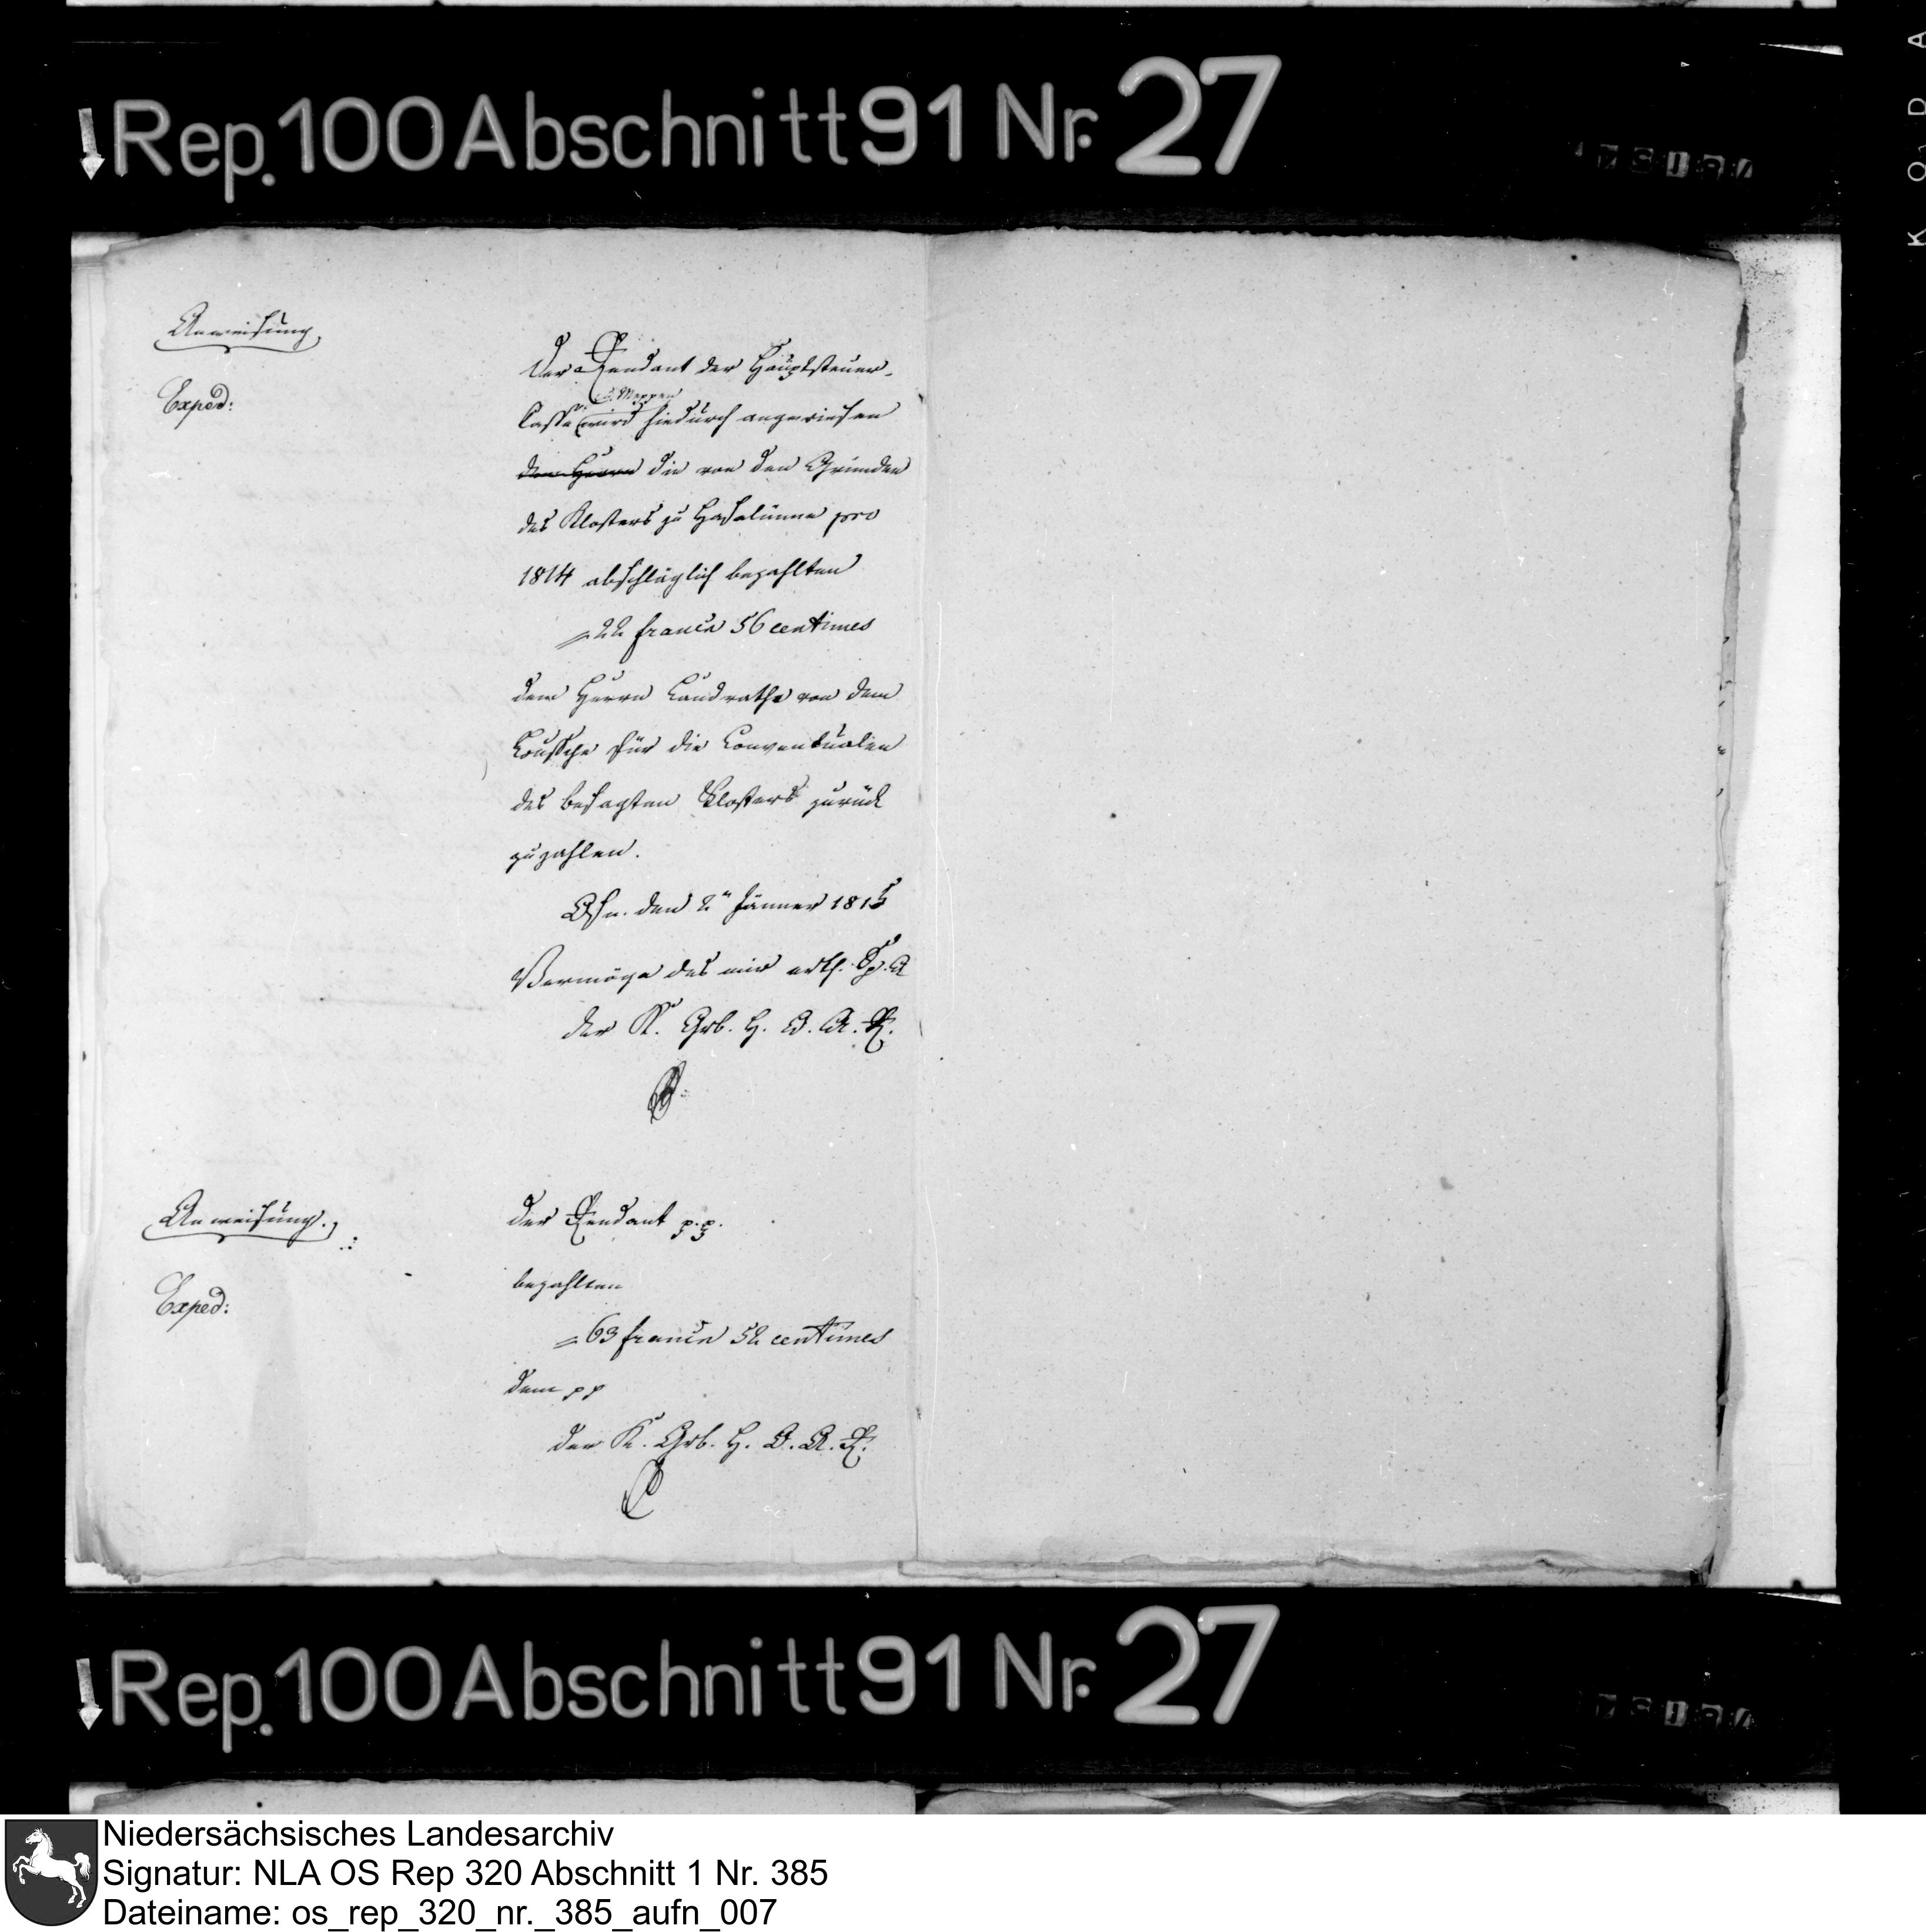 Rep. 100 Abschnitt 91 Nr. 27
Anweisung
Exped:
Der Rendant der Hauptsteuer-
z. Meppen
Casse wird hiedurch angewiesen
dem Herrn die von den Gründen
des Klosters zu Haselünne pro
1814 abschläglich bezahlten
= 22 francs 56 centimes
dem Herrn Landrathe von dem
Bussche für die Conventualen
des besagten Klosters zurück
zu zahlen.
Osn. den 2ten Jänner 1815
Vermöge des mir erth. Sp. A
der K. Grb. H. R.
Anweisung.
Exped:
Der Rendant p.p.
bezahlten
= 63 francs 52 centimes
dem pp
der K. Grb. H. R.
Rep. 100 Abschnitt 91 Nr. 27
KODA
Niedersächsisches Landesarchiv
Signatur: NLA OS Rep 320 Abschnitt 1 Nr. 385
Dateiname: os_rep_320_nr._385_aufn_007